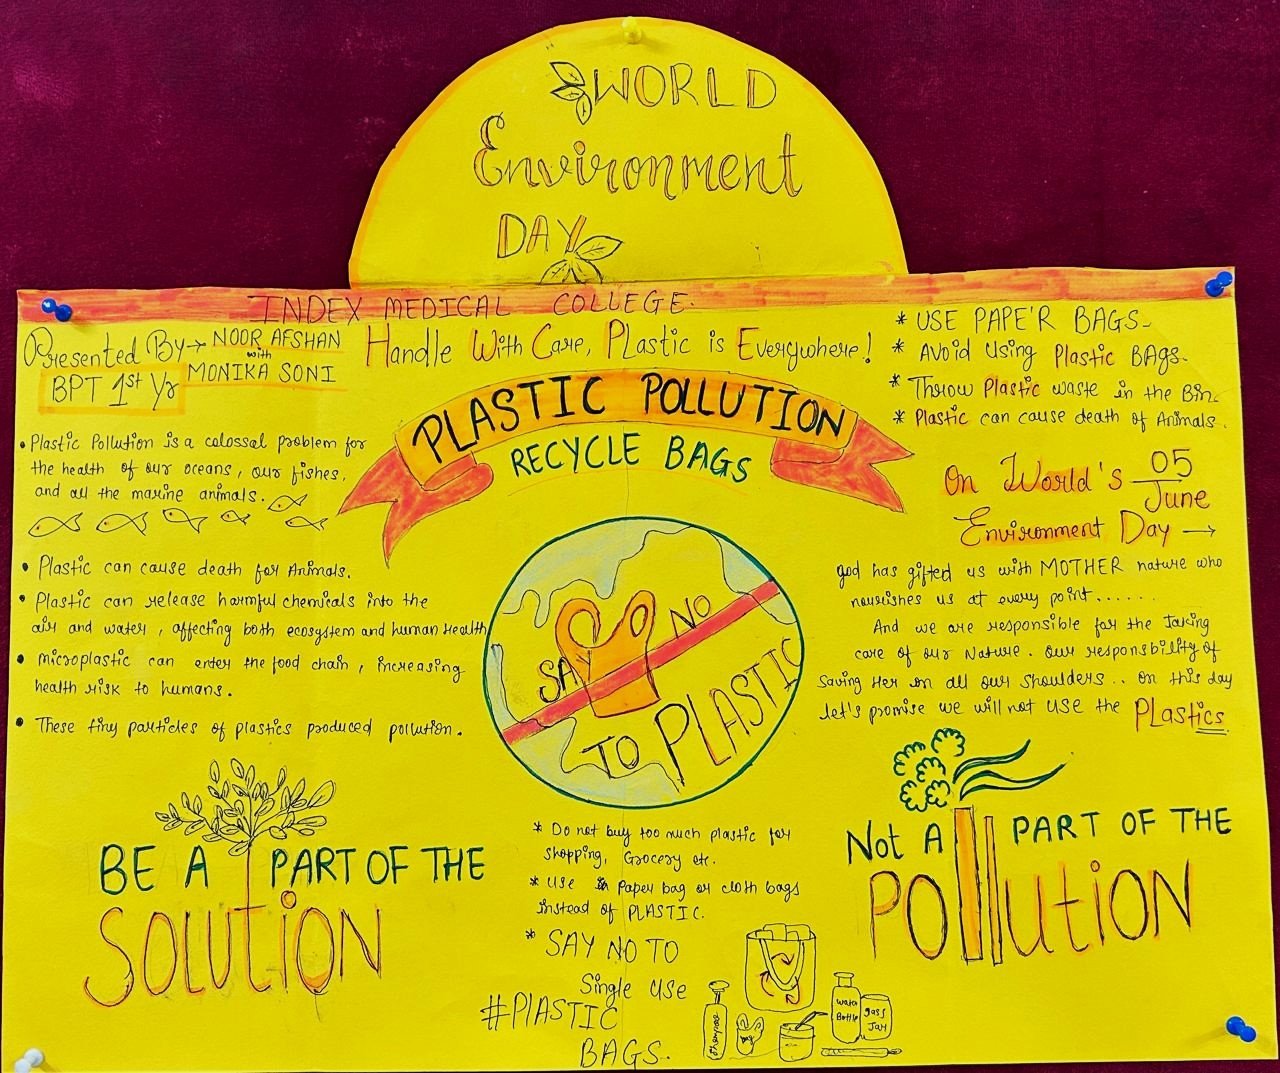 WORLD
Environment
DAY
INDEX MEDICAL COLLEGE.
Presented By → NOOR AFSHAN
with
MONIKA SONI
BPT 1st Yr
Handle With Care, Plastic is Everywhere!
PLASTIC POLLUTION
RECYCLE BAGS
* USE PAPE'R BAGS-
* Avoid Using Plastic BAgs.
* Throw Plastic waste in the Bin.
* Plastic can cause death of Animals.
• Plastic Pollution is a colossal problem for
the health of our oceans, our fishes,
and all the marine animals.
• Plastic can cause death for Animals.
• Plastic can release harmful chemicals into the
air and water, affecting both ecosystem and human health
• Microplastic can enter the food chain, increasing
health risk to humans.
• These tiny particles of plastics produced pollution.
SAY NO
TO PLASTIC
On World's 05 June
Environment Day →
god has gifted us with MOTHER nature who
nourishes us at every point......
And we are responsible for the taking
care of our Nature. our responsbility of
saving Her on all our shoulders.. on this day
let's promise we will not use the PLastics
BE A PART OF THE
SOLUtiON
* Do not buy too much plastic for
shopping, Grocery etc.
* Use Paper bag or cloth bags
instead of PLASTIC.
* SAY NO TO
Single Use
#PlASTIC
BAGS.
Water
Bottle
gass
Jar
Not A PART OF THE
POllutiON